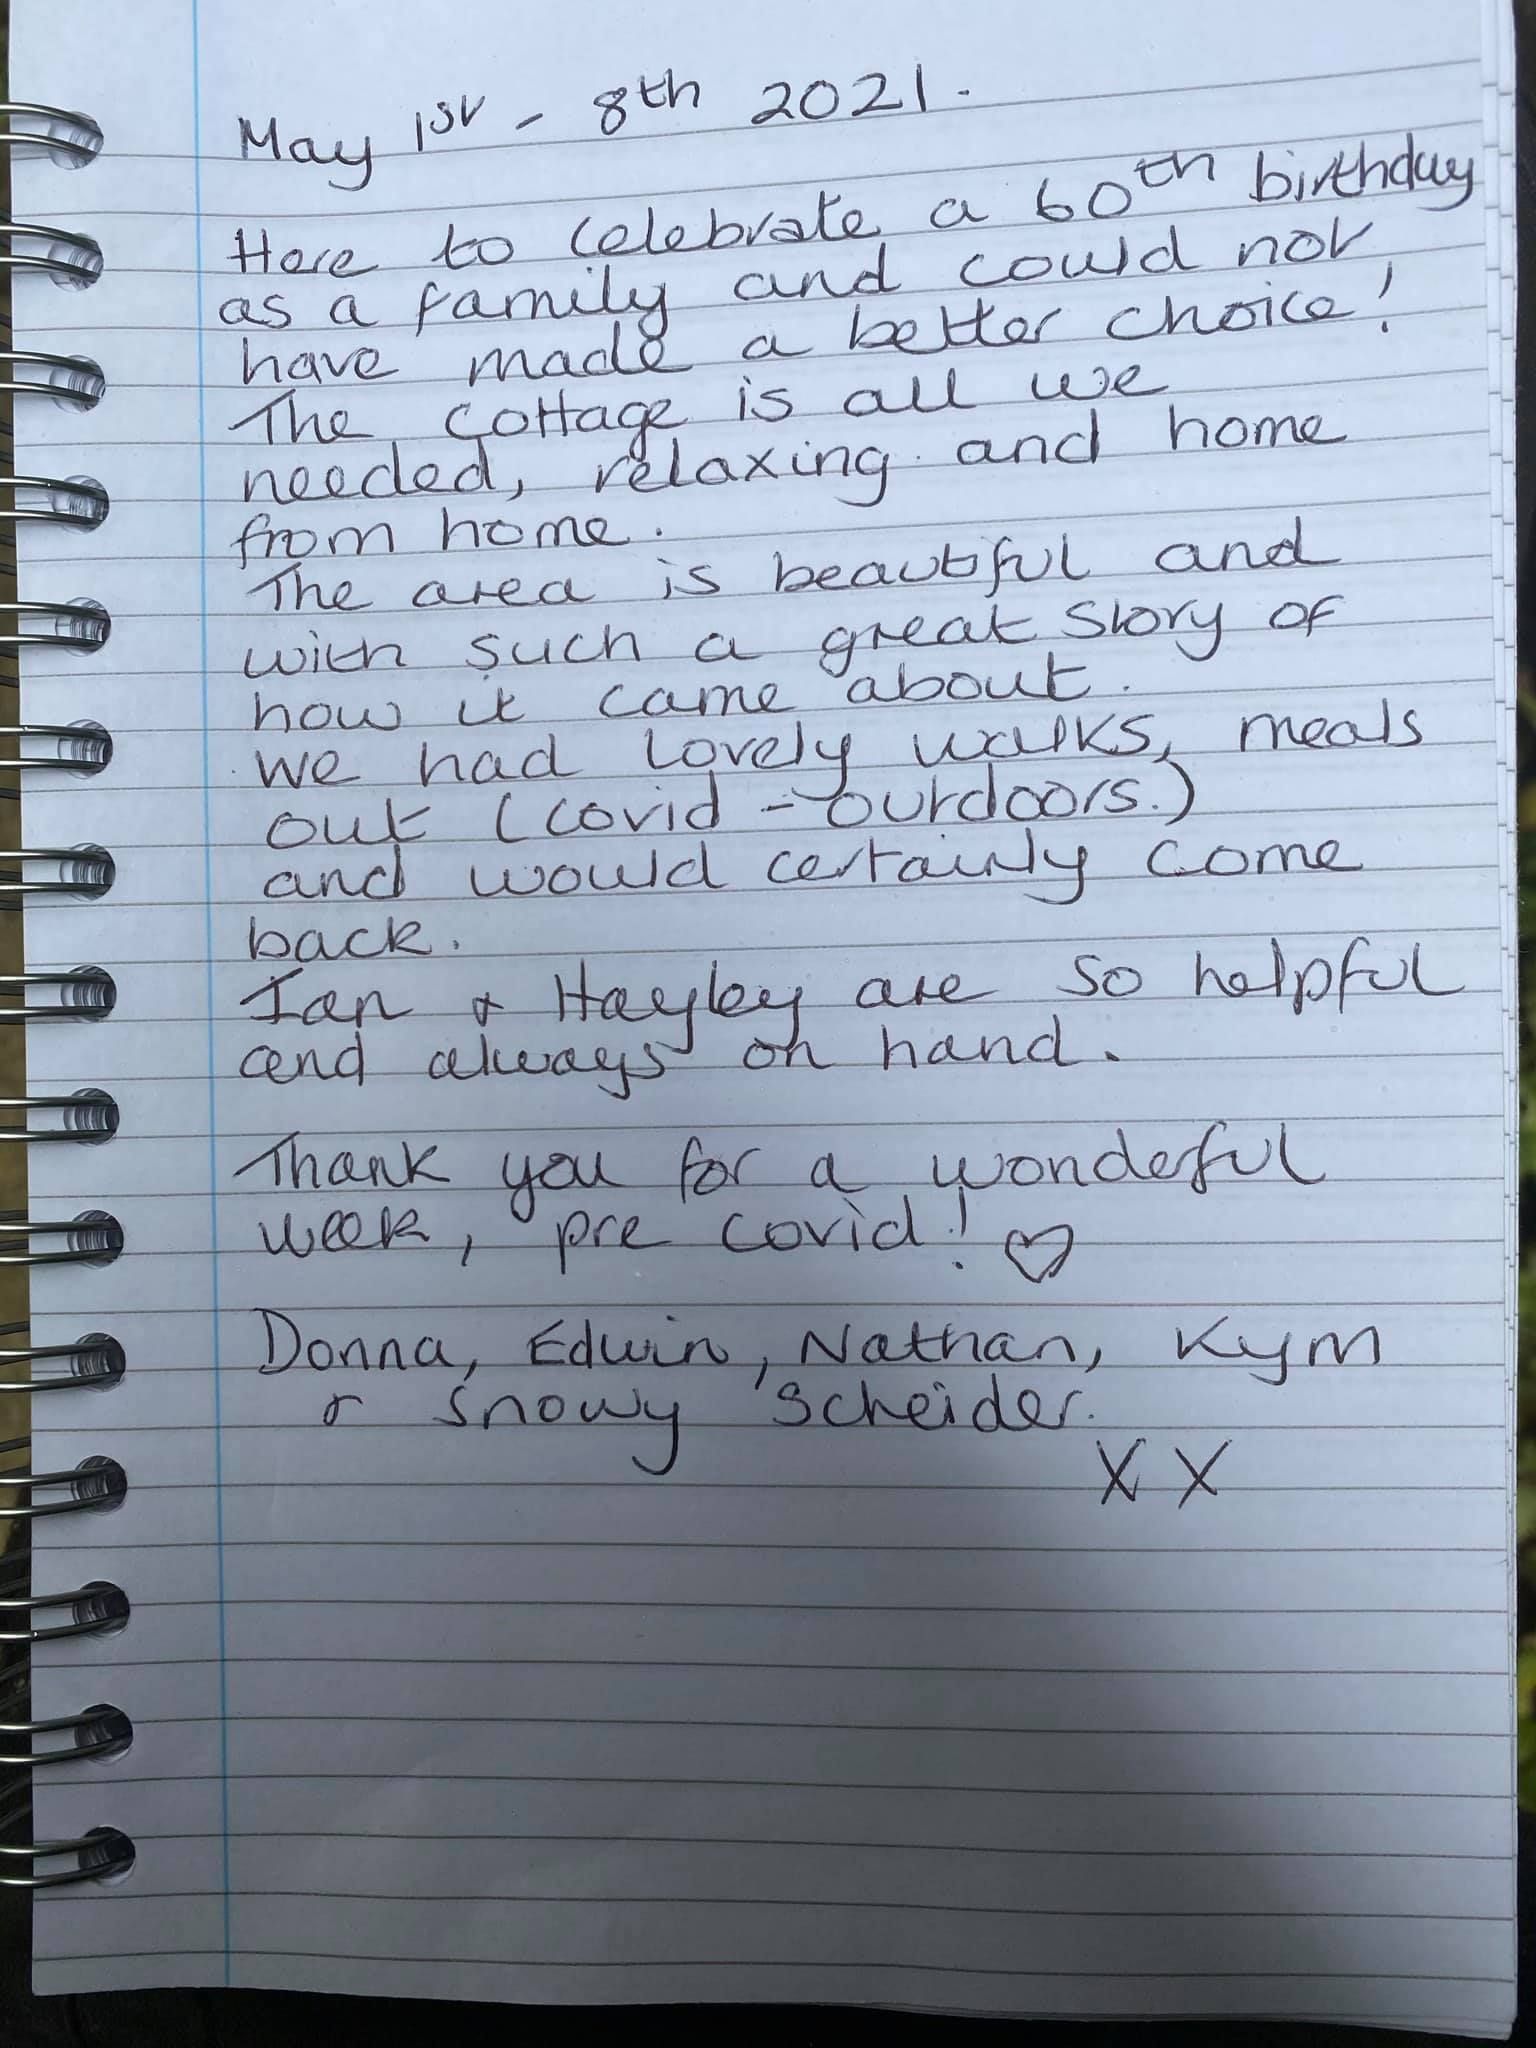 May 1st - 8th 2021.
Here to celebrate a 60th birthday
as a family and could not
have made a better choice!
The cottage is all we
needed, relaxing and home
from home.
The area is beautiful and
with such a great story of
how it came about.
We had lovely walks, meals
out (covid - outdoors.)
and would certainly come
back.
Ian & Hayley are so helpful
and always on hand.
Thank you for a wonderful
week, pre covid! ♡
Donna, Edwin, Nathan, Kym
& Snowy Scheider.
X X